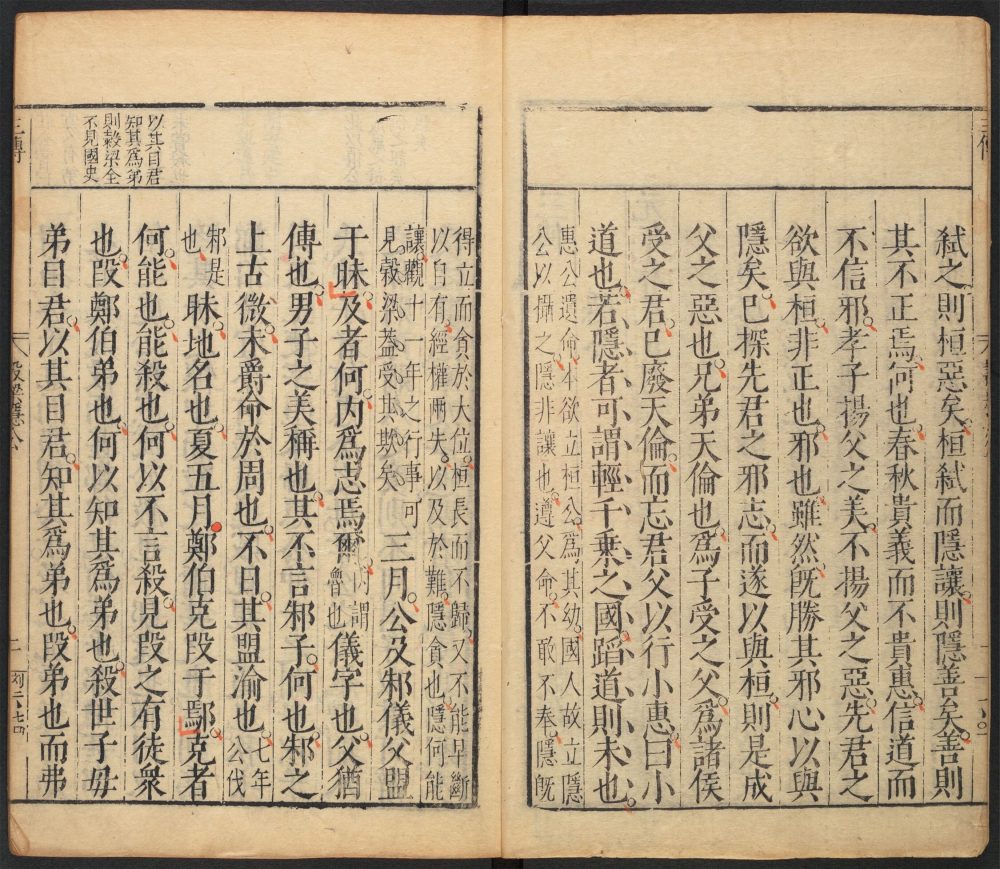 弒之則桓惡矣桓弒而隱讓則隱善矣善則
其不正焉何也春秋貴義而不貴惠信道而
不信邪孝子揚父之美不揚父之惡先君之
欲與桓非正也邪也雖然旣勝其邪心以與
隱矣已探先君之邪志而遂以與桓則是成
父之惡也兄弟天倫也爲子受之父爲諸侯
受之君已廢天倫而忘君父以行小惠曰小
道也若隱者可謂輕千乗之國蹈道則未也
惠公遺命本欲立桓公爲其幼國人故立隱
公以攝之隱非讓也遵父命不敢不奉隱旣
得立而貪於大位桓長而不歸又不能早斷
以自有經權兩失以及於難隱貪也隱何能
讓觀十一年之行事可
見穀梁蓋受其欺矣
三月公及邾儀父盟
于眛及者何内爲志焉爾
内謂
魯也
儀字也父猶
傅也男子之美稱也其不言邾子何也邾之
上古微未爵命於周也不日其盟渝也
七年
公伐
邾是
也
眛地名也夏五月鄭伯克段于鄢克者
何能也能殺也何以不言殺見段之有徒衆
也段鄭伯弟也何以知其爲弟也殺世子毋
弟目君以其目君知其爲弟也段弟也而弗
以其目君
知其爲弟
則穀梁全
不見國史
三傳
穀梁隱公
二